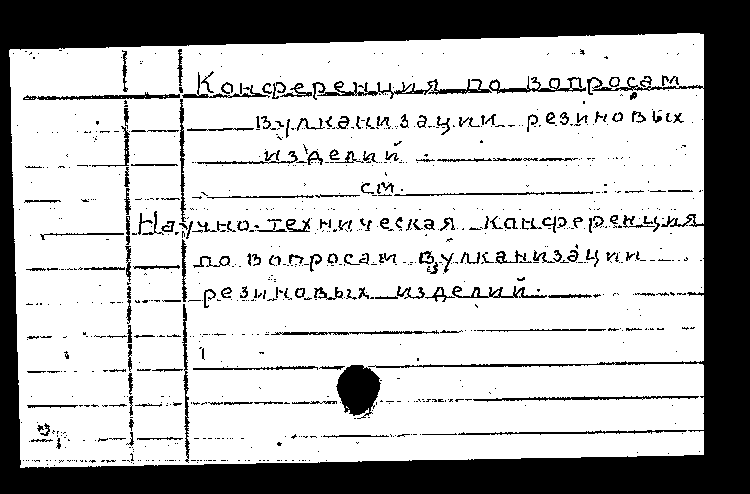 Конференция по вопросам
вулканизации резиновых
изделий.
см.
Научно-техническая конференция
по вопросам вулканизации
резиновых изделий.